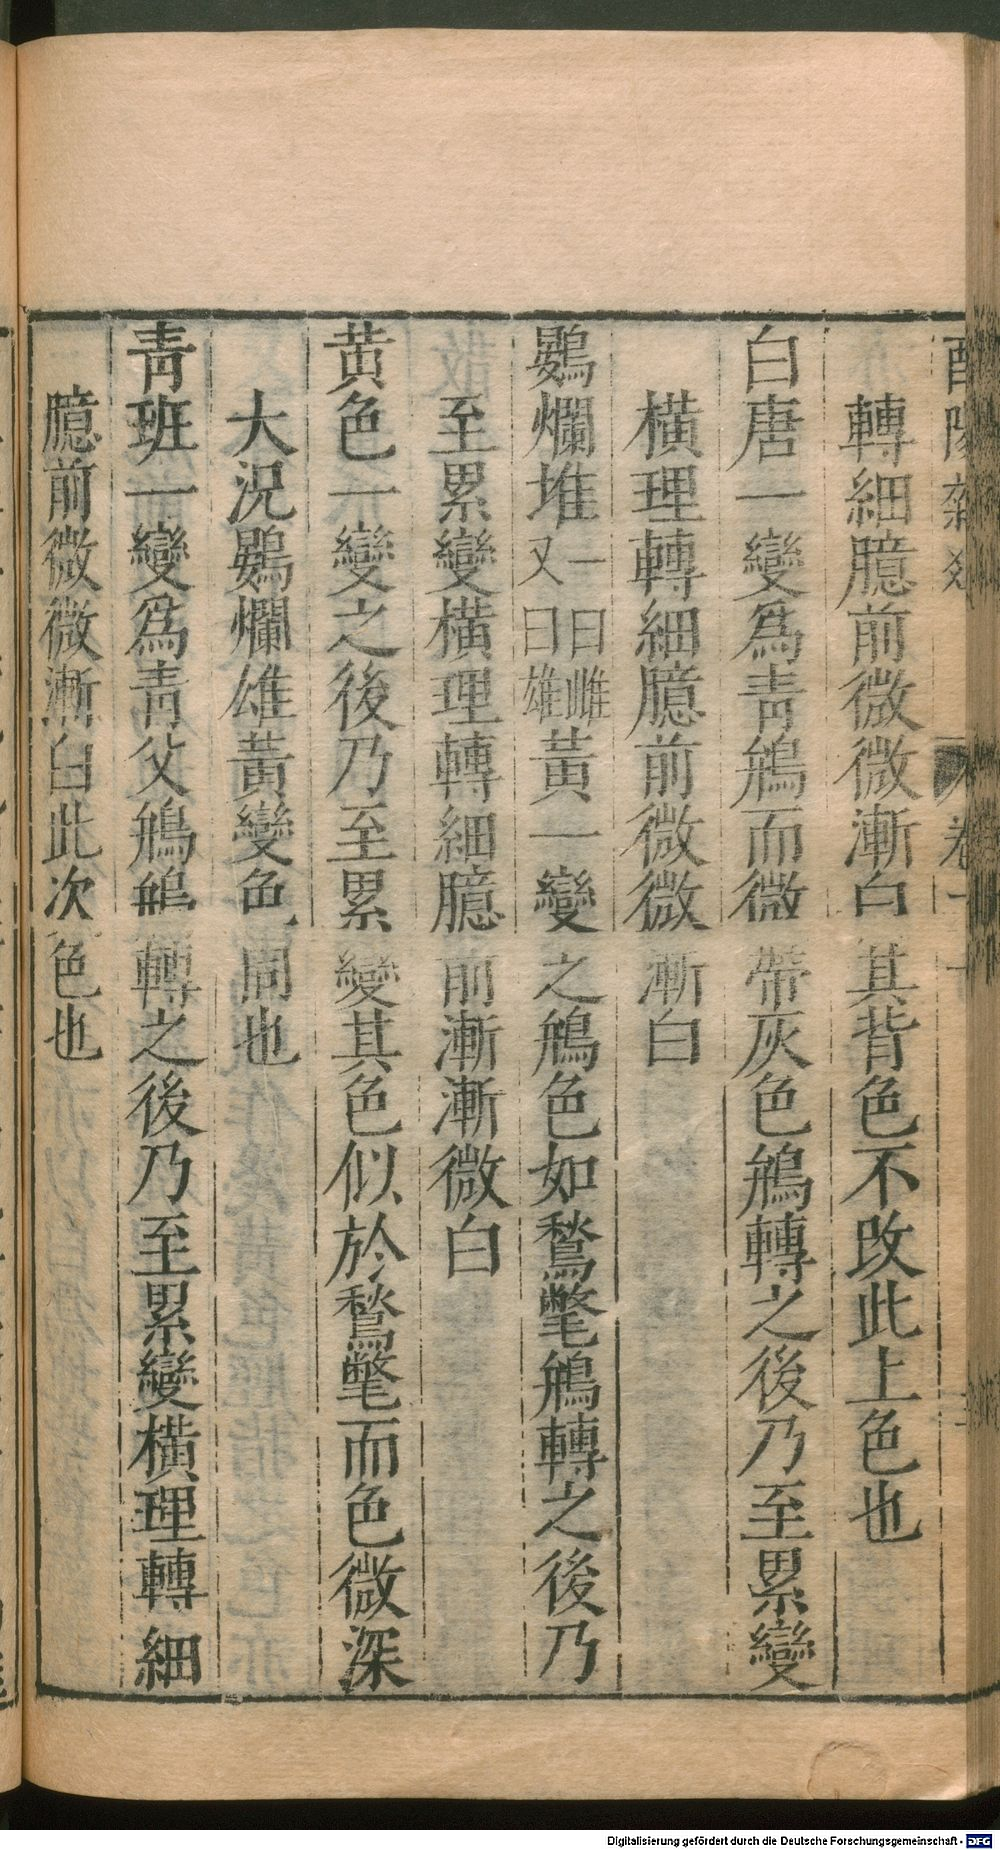 轉細臆前微微漸白其背色不改此上色也
白唐一變爲靑鴘而微帶灰色鴘轉之後乃至累變
橫理轉細臆前微微漸白
鷃爛堆一曰雌又曰雄黃一變之鴘色如鶖氅鴘轉之後乃
至累變橫理轉細臆前漸漸微白
黄色一變之後乃至累變其色似於鶖氅而色微深
大況鷃爛雄黃變色同也
靑班一變爲靑父鴘鴘轉之後乃至累變橫理轉細
臆前微微漸白此次色也
Digitalisierung gefördert durch die Deutsche Forschungsgemeinschaft - DFG